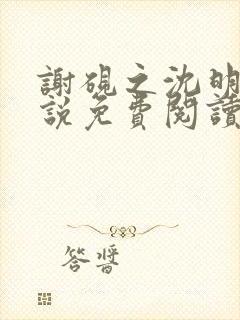 謝硯之沈明
說免費閱讀
答醬